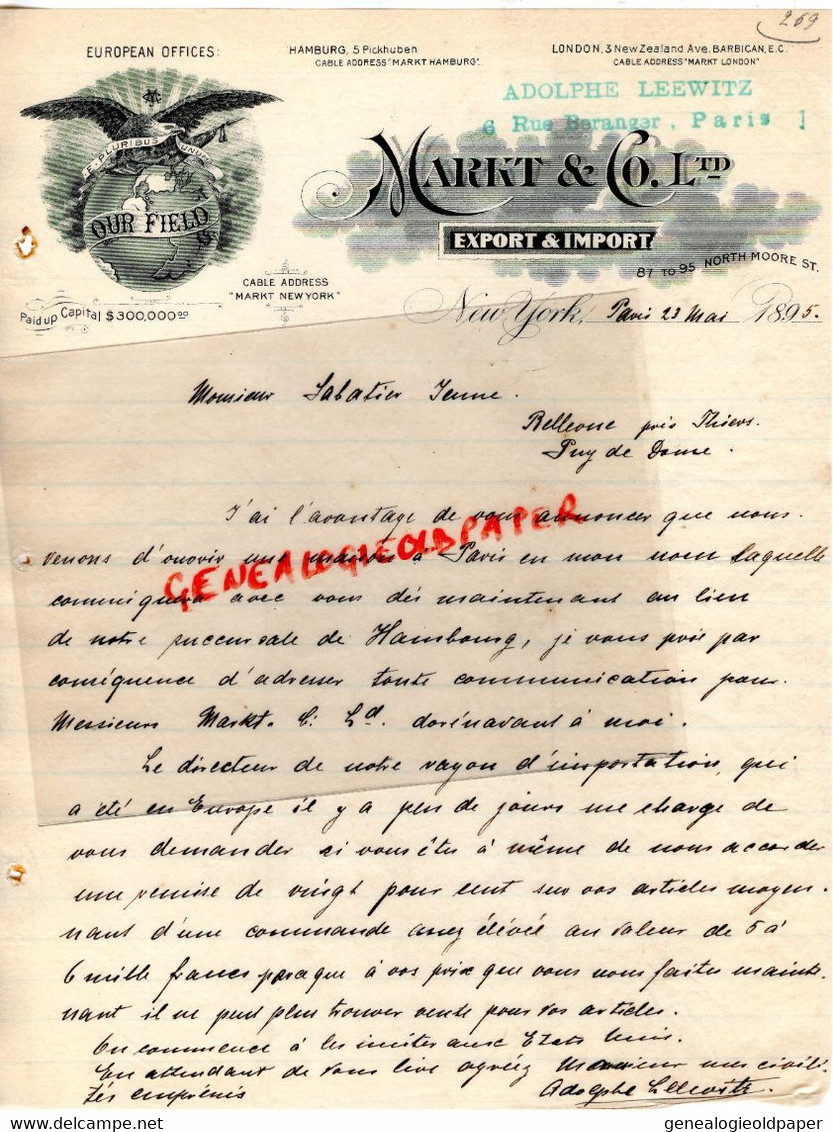 269
EUROPEAN OFFICES:
HAMBURG, 5 Pickhuben
CABLE ADDRESS "MARKT HAMBURG".
LONDON, 3 New Zealand Ave. BARBICAN, E.C.
CABLE ADDRESS "MARKT LONDON"
ADOLPHE LEEWITZ
6 Rue Beranger, Paris
E. PLURIBUS UNUM
OUR FIELD
MARKT & CO. LTD
EXPORT & IMPORT
87 TO 95 NORTH MOORE ST.
CABLE ADDRESS
"MARKT NEW YORK"
Paid up Capital $300,000.00
New York, Paris 23 Mai 1895.
Monsieur Sabatier Jeune.
Bellevue près Thiers.
Puy de Dome.
J'ai l'avantage de vous annoncer que nous
venons d'ouvrir une maison à Paris en mon nom laquelle
communiquera avec vous dès maintenant au lieu
de notre succursale de Hambourg, je vous prie par
conséquence d'adresser toute communication pour
Messieurs Markt. C: Ld. dorénavant à moi.
Le directeur de notre rayon d'importation, qui
a été en Europe il y a peu de jours me charge de
vous demander si vous êtes à même de nous accorder
une remise de vingt pour cent sur vos articles moyen-
nant d'une commande assez élévée au valeur de 5 à
6 mille francs parceque à vos prix que vous nous faites mainte-
nant il ne peut plus trouver vente pour vos articles.
On commence à les imiter aux Etats Unis.
En attendant de vous lire agréez Monsieur mes civili-
tés empréssés
Adolphe Leewitz.
GENEALOGIEOLDPAPER
genealogieoldpaper
genealogieoldpaper